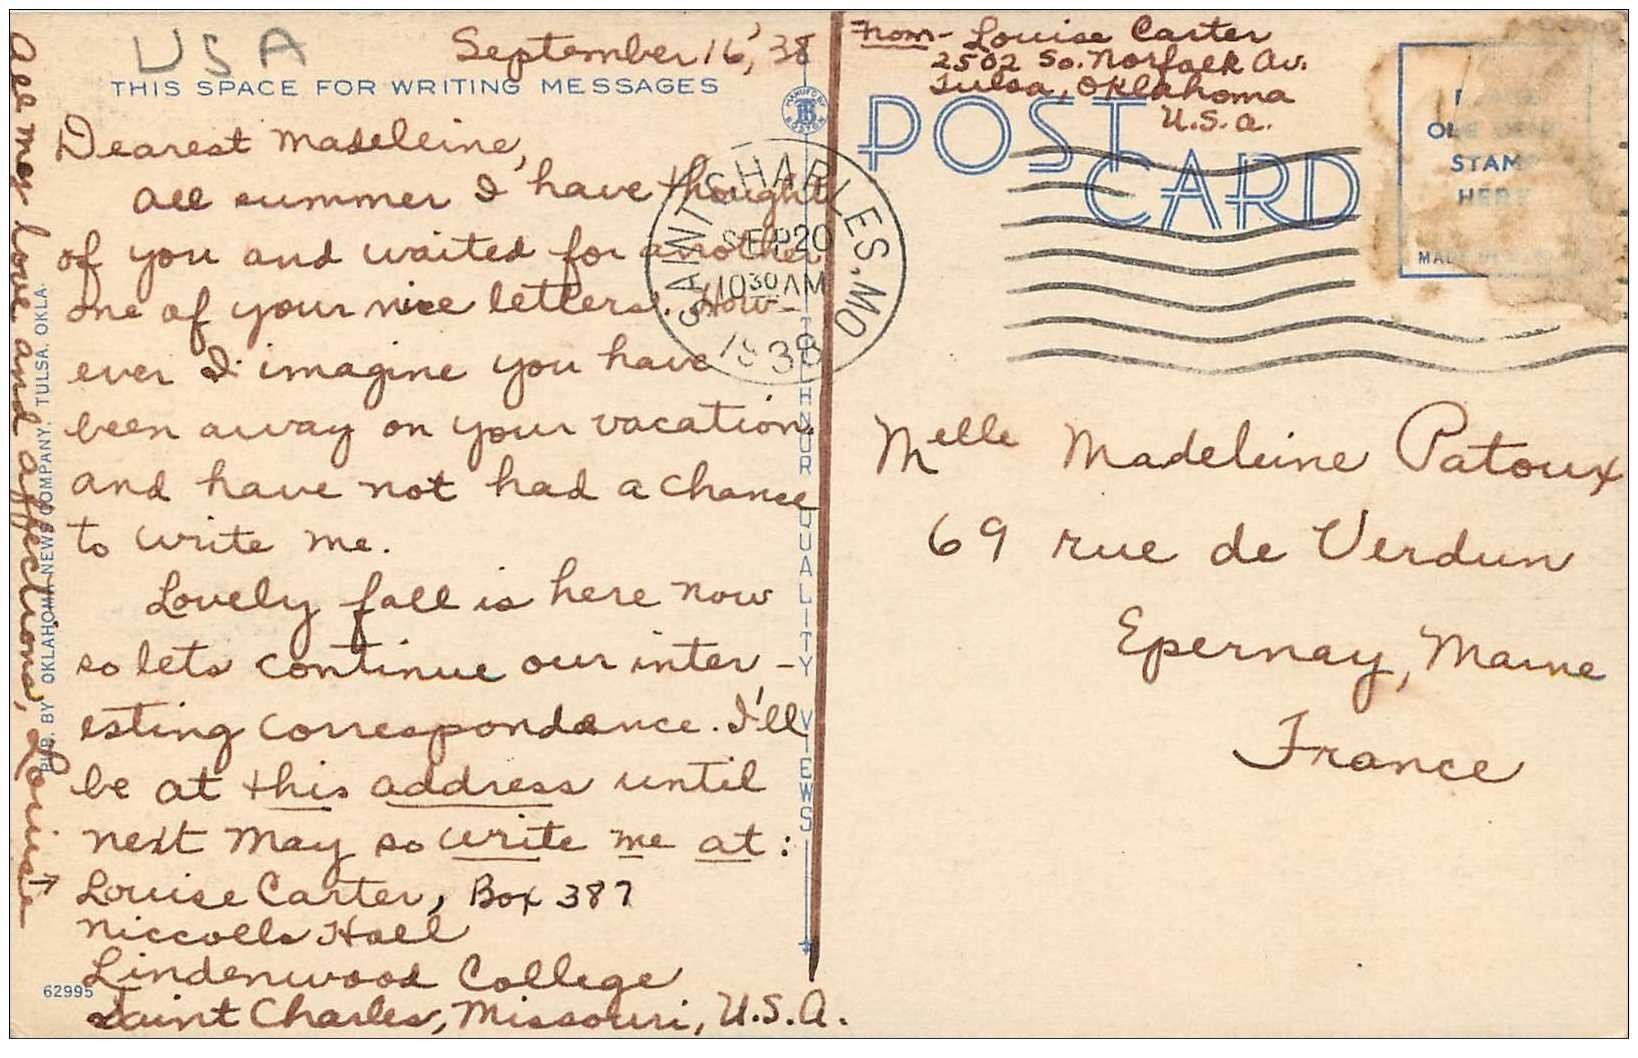 USA
September 16, '38
THIS SPACE FOR WRITING MESSAGES
Dearest Madeleine,
All summer I have thought
of you and waited for another
one of your nice letters. How-
ever I imagine you have
been away on your vacation
and have not had a chance
to write me.
Lovely fall is here now
so lets continue our inter-
esting correspondance. I'll
be at this address until
next May so write me at:
Louise Carter, Box 387
Niccolls Hall
Lindenwood College
Saint Charles, Missouri, U.S.A.
All my love and affections, Louise
PUB. BY OKLAHOMA NEWS COMPANY, TULSA, OKLA.
62995
MANUF. BY
BOSTON
QUALITY VIEWS
SAINT CHARLES, MO
SEP 20
10 30 AM
1938
From- Louise Carter
2502 So. Norfolk Av.
Tulsa, Oklahoma
U.S.A.
POST
CARD
STAMP
HERE
Melle Madeleine Patoux
69 rue de Verdun
Epernay, Marne
France